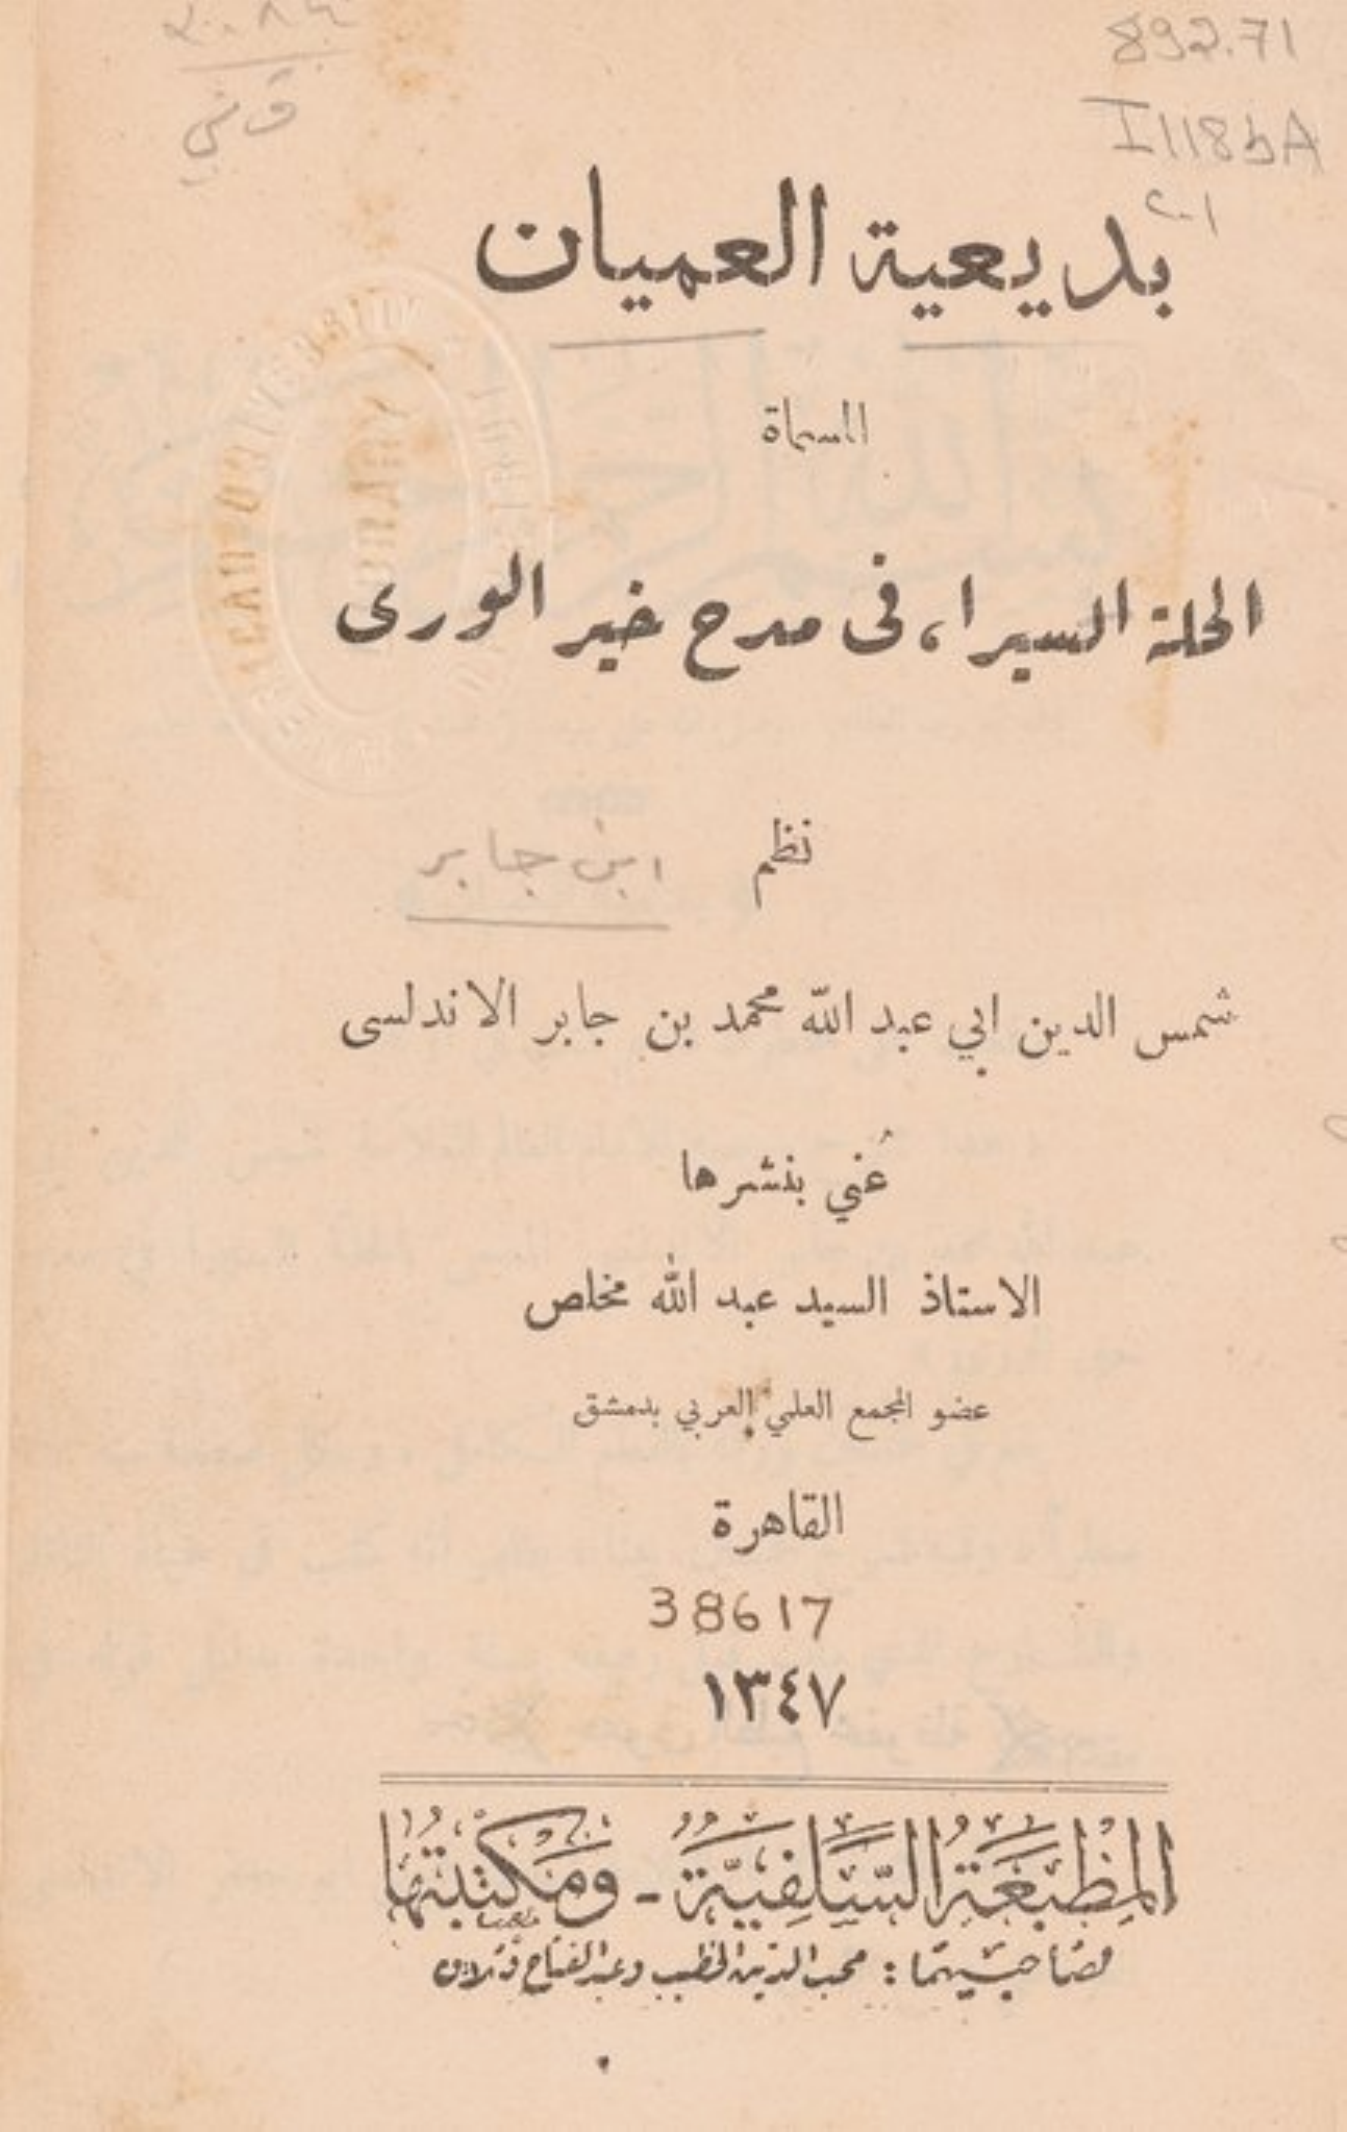 892.71
I118bA
c.1
بديعية العميان
المسماة
الحلة السيرا، في مدح خير الورى
نظم ابن جابر
شمس الدين ابي عبد الله محمد بن جابر الاندلسى
عُني بنشرها
الاستاذ السيد عبد الله مخلص
عضو المجمع العلمي العربي بدمشق
القاهرة
38617
١٣٤٧
المطبَعَةُ السَّلفِيَّة - ومَكتبتُها
لصَاحبَيهمَا : محب الدين الخطيب وعبد الفتاح قتلان